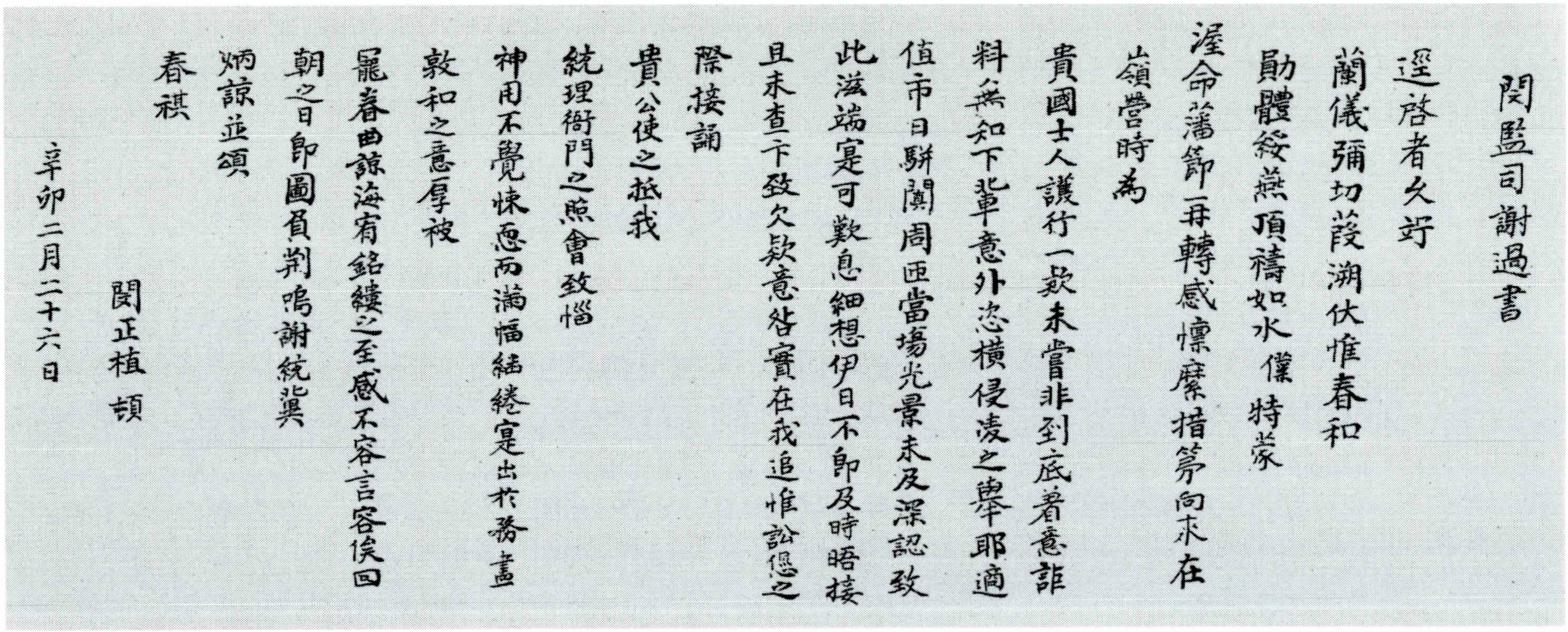 閔監司謝過書
逕啓者久竚
蘭儀彌切葭溯伏惟春和
勛體綏燕頂禱如水僕特蒙
渥命藩節再轉感懍縻措第向來在
嶺營時為
貴國士人護行一款未嘗非到底着意詎
料無知下輩意外恣橫侵凌之舉耶適
值市日駢闐周匝當場光景未及深認致
此滋端寔可歎息細想伊日不卽及時晤接
且未查卞致欠款意咎實在我追惟訟愆之
際接誦
貴公使之抵我
統理衙門之照會致惱
神用不覺悚恧而滿幅繾綣寔出於務盡
敦和之意厚被
寵眷曲諒海宥銘縷之至感不容言容俟回
朝之日卽圖負荊鳴謝統冀
炳諒並頌
春祺
閔正植頓
辛卯二月二十六日